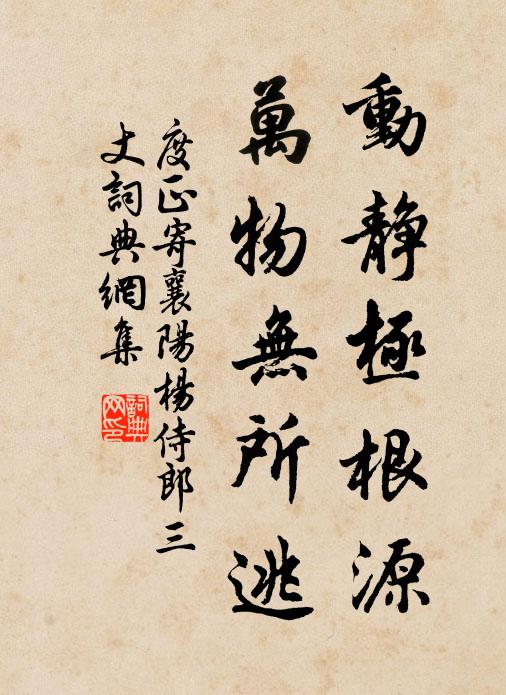 動靜極根源
萬物無所逃
度正寄襄陽楊侍郎三
丈詞典網集
詞典網印